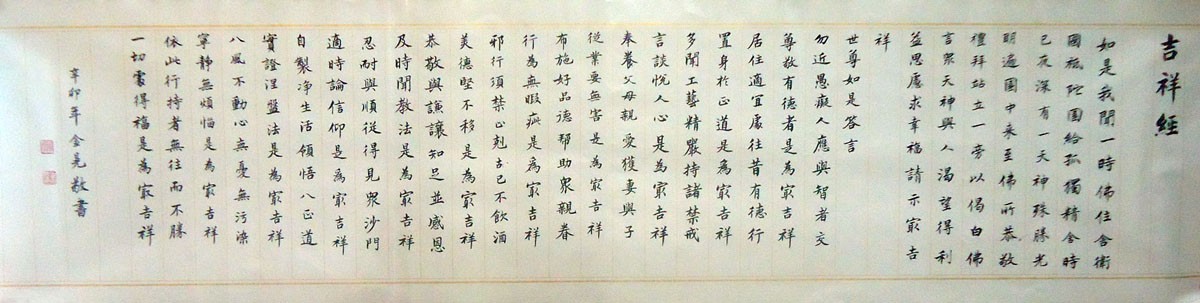 吉祥經
如是我聞一時佛住舍衛
國祗陀園給孤獨精舍時
已夜深有一天神殊勝光
明遍園中來至佛所恭敬
禮拜站立一旁以偈白佛
言眾天神與人渴望得利
益思慮求幸福請示最吉
祥
世尊如是答言
勿近愚癡人應與智者交
尊敬有德者是為最吉祥
居住適宜處往昔有德行
置身於正道是為最吉祥
多聞工藝精嚴持諸禁戒
言談悅人心是為最吉祥
奉養父母親愛獲妻與子
從業要無害是為最吉祥
布施好品德幫助眾親眷
行為無瑕疵是為最吉祥
邪行須禁止剋己不飲酒
美德堅不移是為最吉祥
恭敬與謙讓知足並感恩
及時聞教法是為最吉祥
忍耐與順從得見眾沙門
適時論信仰是為最吉祥
自製淨生活領悟八正道
實證涅盤法是為最吉祥
八風不動心無憂無污染
寧靜無煩惱是為最吉祥
依此行持者無往而不勝
一切處得福是為最吉祥
辛卯年金堯敬書